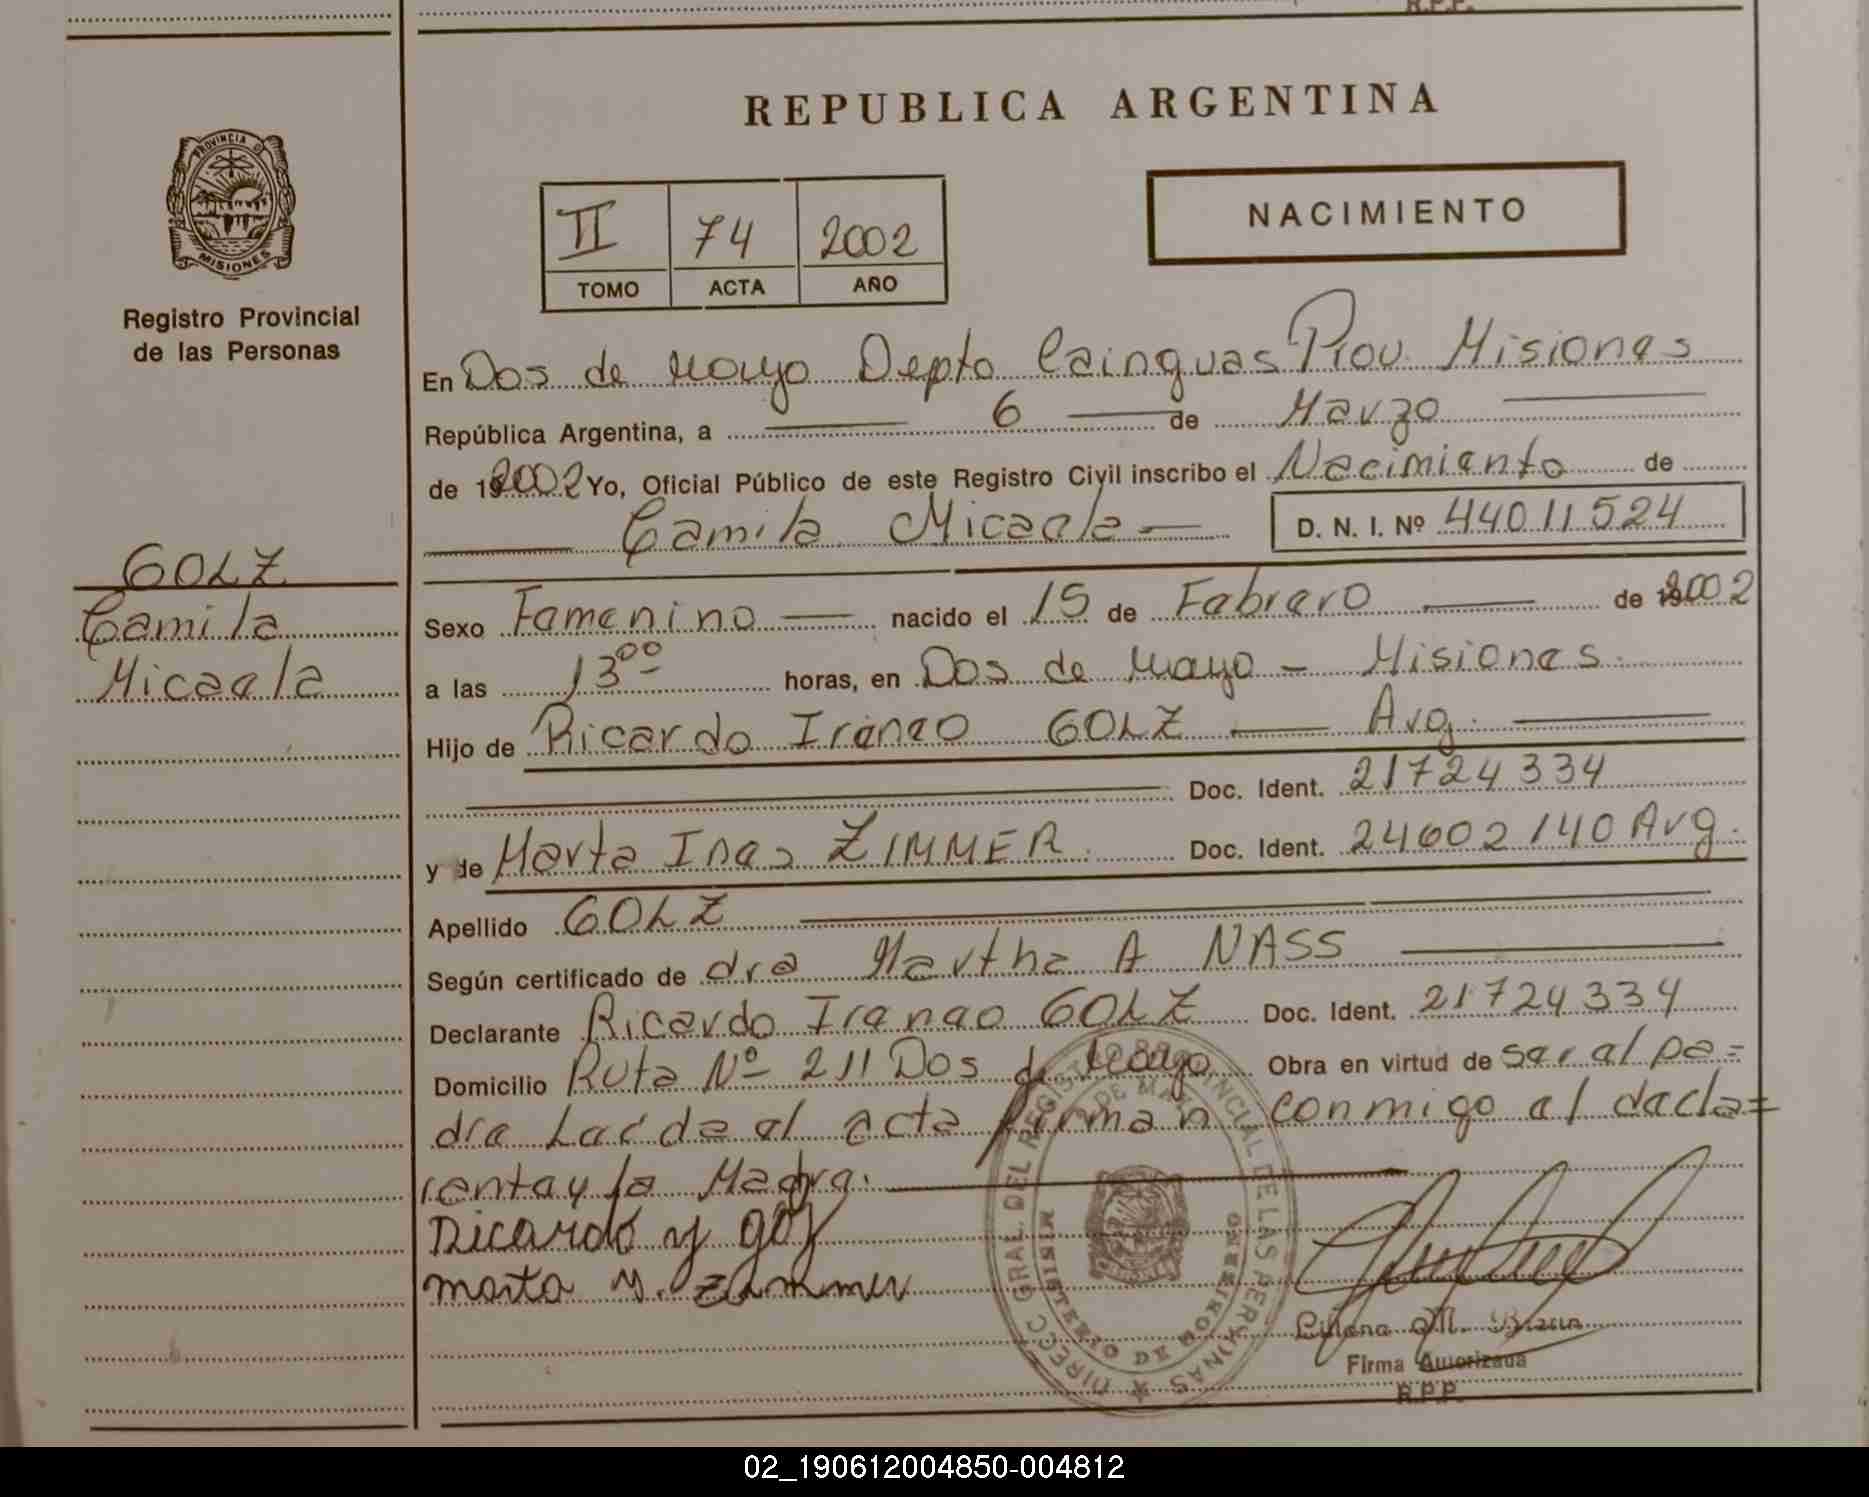 R.P.P.
REPUBLICA ARGENTINA
PROVINCIA D
MISIONES
Registro Provincial
de las Personas
II 74 2002
TOMO ACTA AÑO
NACIMIENTO
En Dos de Mayo Depto Cainguas Prov. Misiones
República Argentina, a 6 de Marzo
de 192002 Yo, Oficial Público de este Registro Civil inscribo el Nacimiento de
Camila Micaela D. N. I. Nº 44011524
GOLZ
Camila
Micaela
Sexo Femenino nacido el 15 de Febrero de 192002
a las 13 00 horas, en Dos de Mayo - Misiones
Hijo de Ricardo Ireneo GOLZ Arg.
Doc. Ident. 21724334
y de Marta Ines ZIMMER Doc. Ident. 24602140 Arg.
Apellido GOLZ
Según certificado de dra Martha A NASS
Declarante Ricardo Ireneo GOLZ Doc. Ident. 21724334
Domicilio Ruta Nº 211 Dos de Mayo Obra en virtud de ser el pa=
dre Leída el acta firman conmigo el decla=
rente y la Madre.
Ricardo y golz
marta y. zimmer
DIRECC GRAL DEL REGISTRO PROVINCIAL DE LAS PERSONAS
2 DE MAYO
MINISTERIO DE GOBIERNO
Liliana M.
Firma Autorizada
R.P.P.
02_190612004850-004812